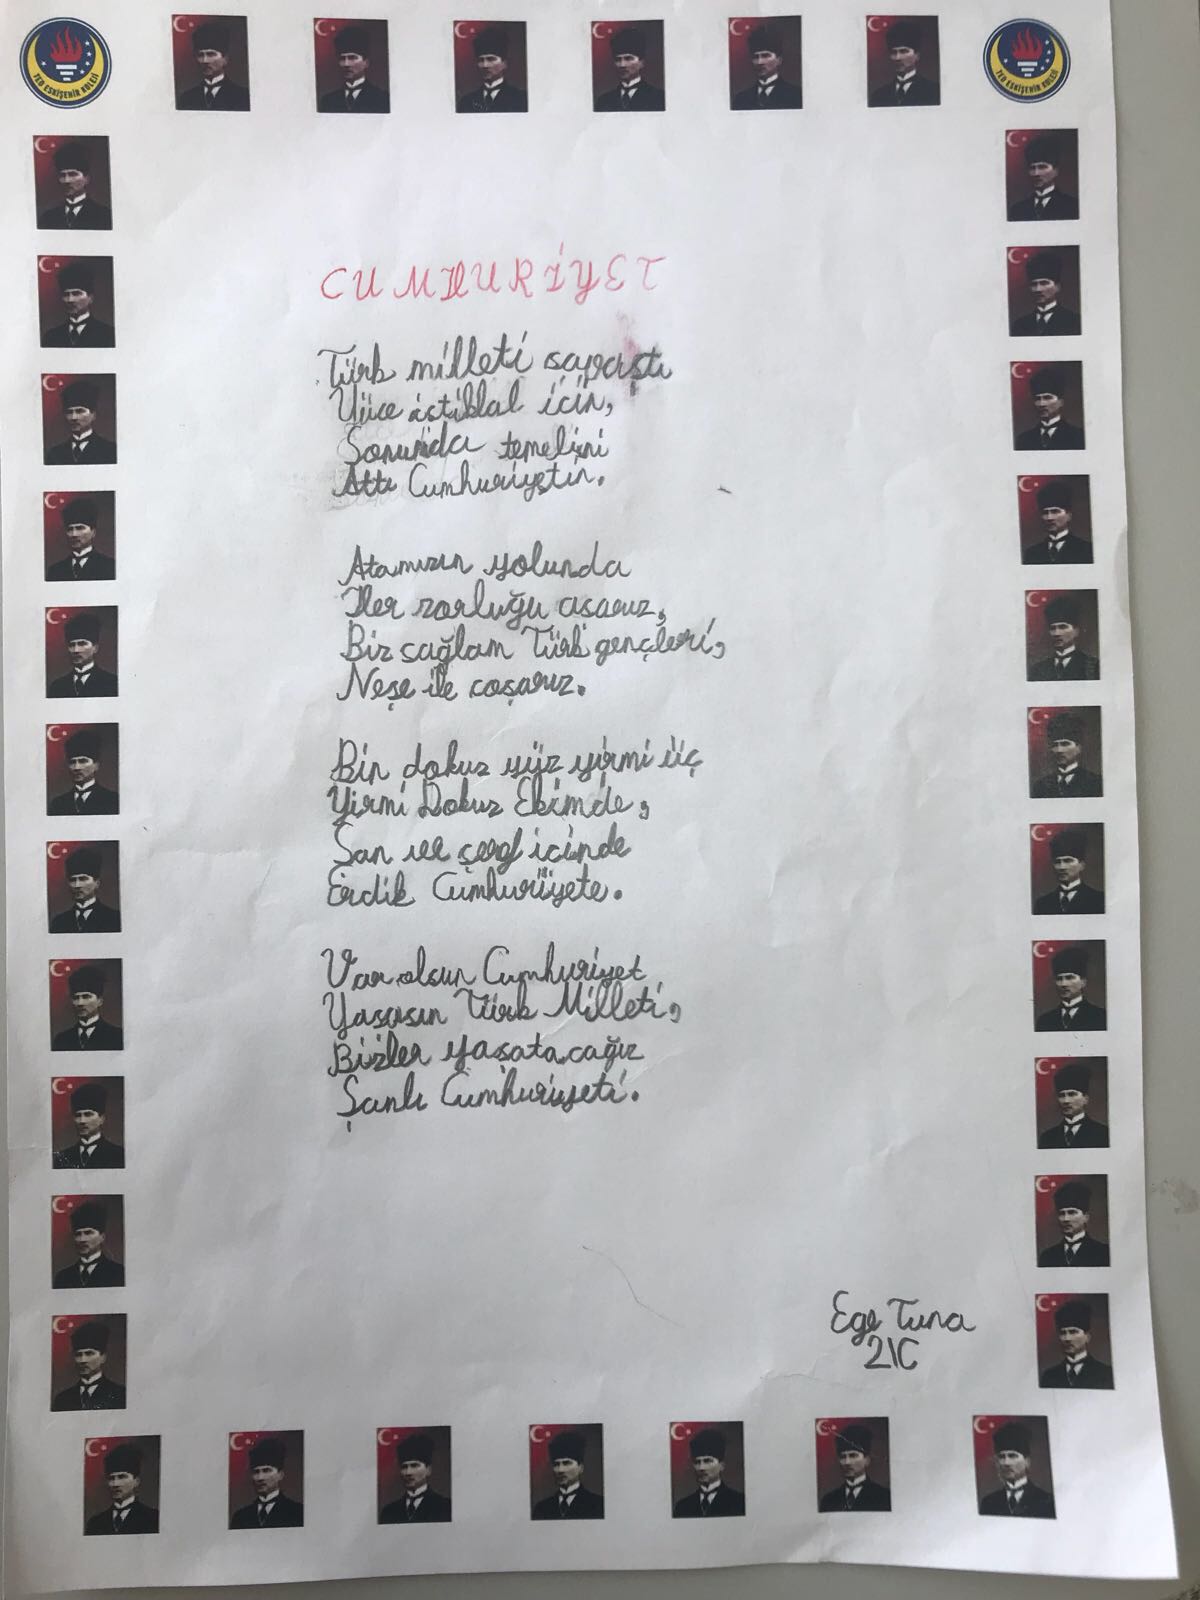 TED ESKİŞEHİR KOLEJİ
TED ESKİŞEHİR KOLEJİ
CUMHURİYET
Türk milleti savaştı
Yüce istiklal için,
Sonunda temelini
Attı Cumhuriyetin.
Atamızın yolunda
Her zorluğu asarız,
Biz sağlam Türk gençleri,
Neşe ile coşarız.
Bin dokuz yüz yirmi üç
Yirmi Dokuz Ekimde,
San ve içinde
Erdik Cumhuriyete.
Var olsun Cumhuriyet
Yasasın Türk Milleti,
Bizler yasatacağız
Şanlı Cumhuriyeti.
Ege Tuna
2\C